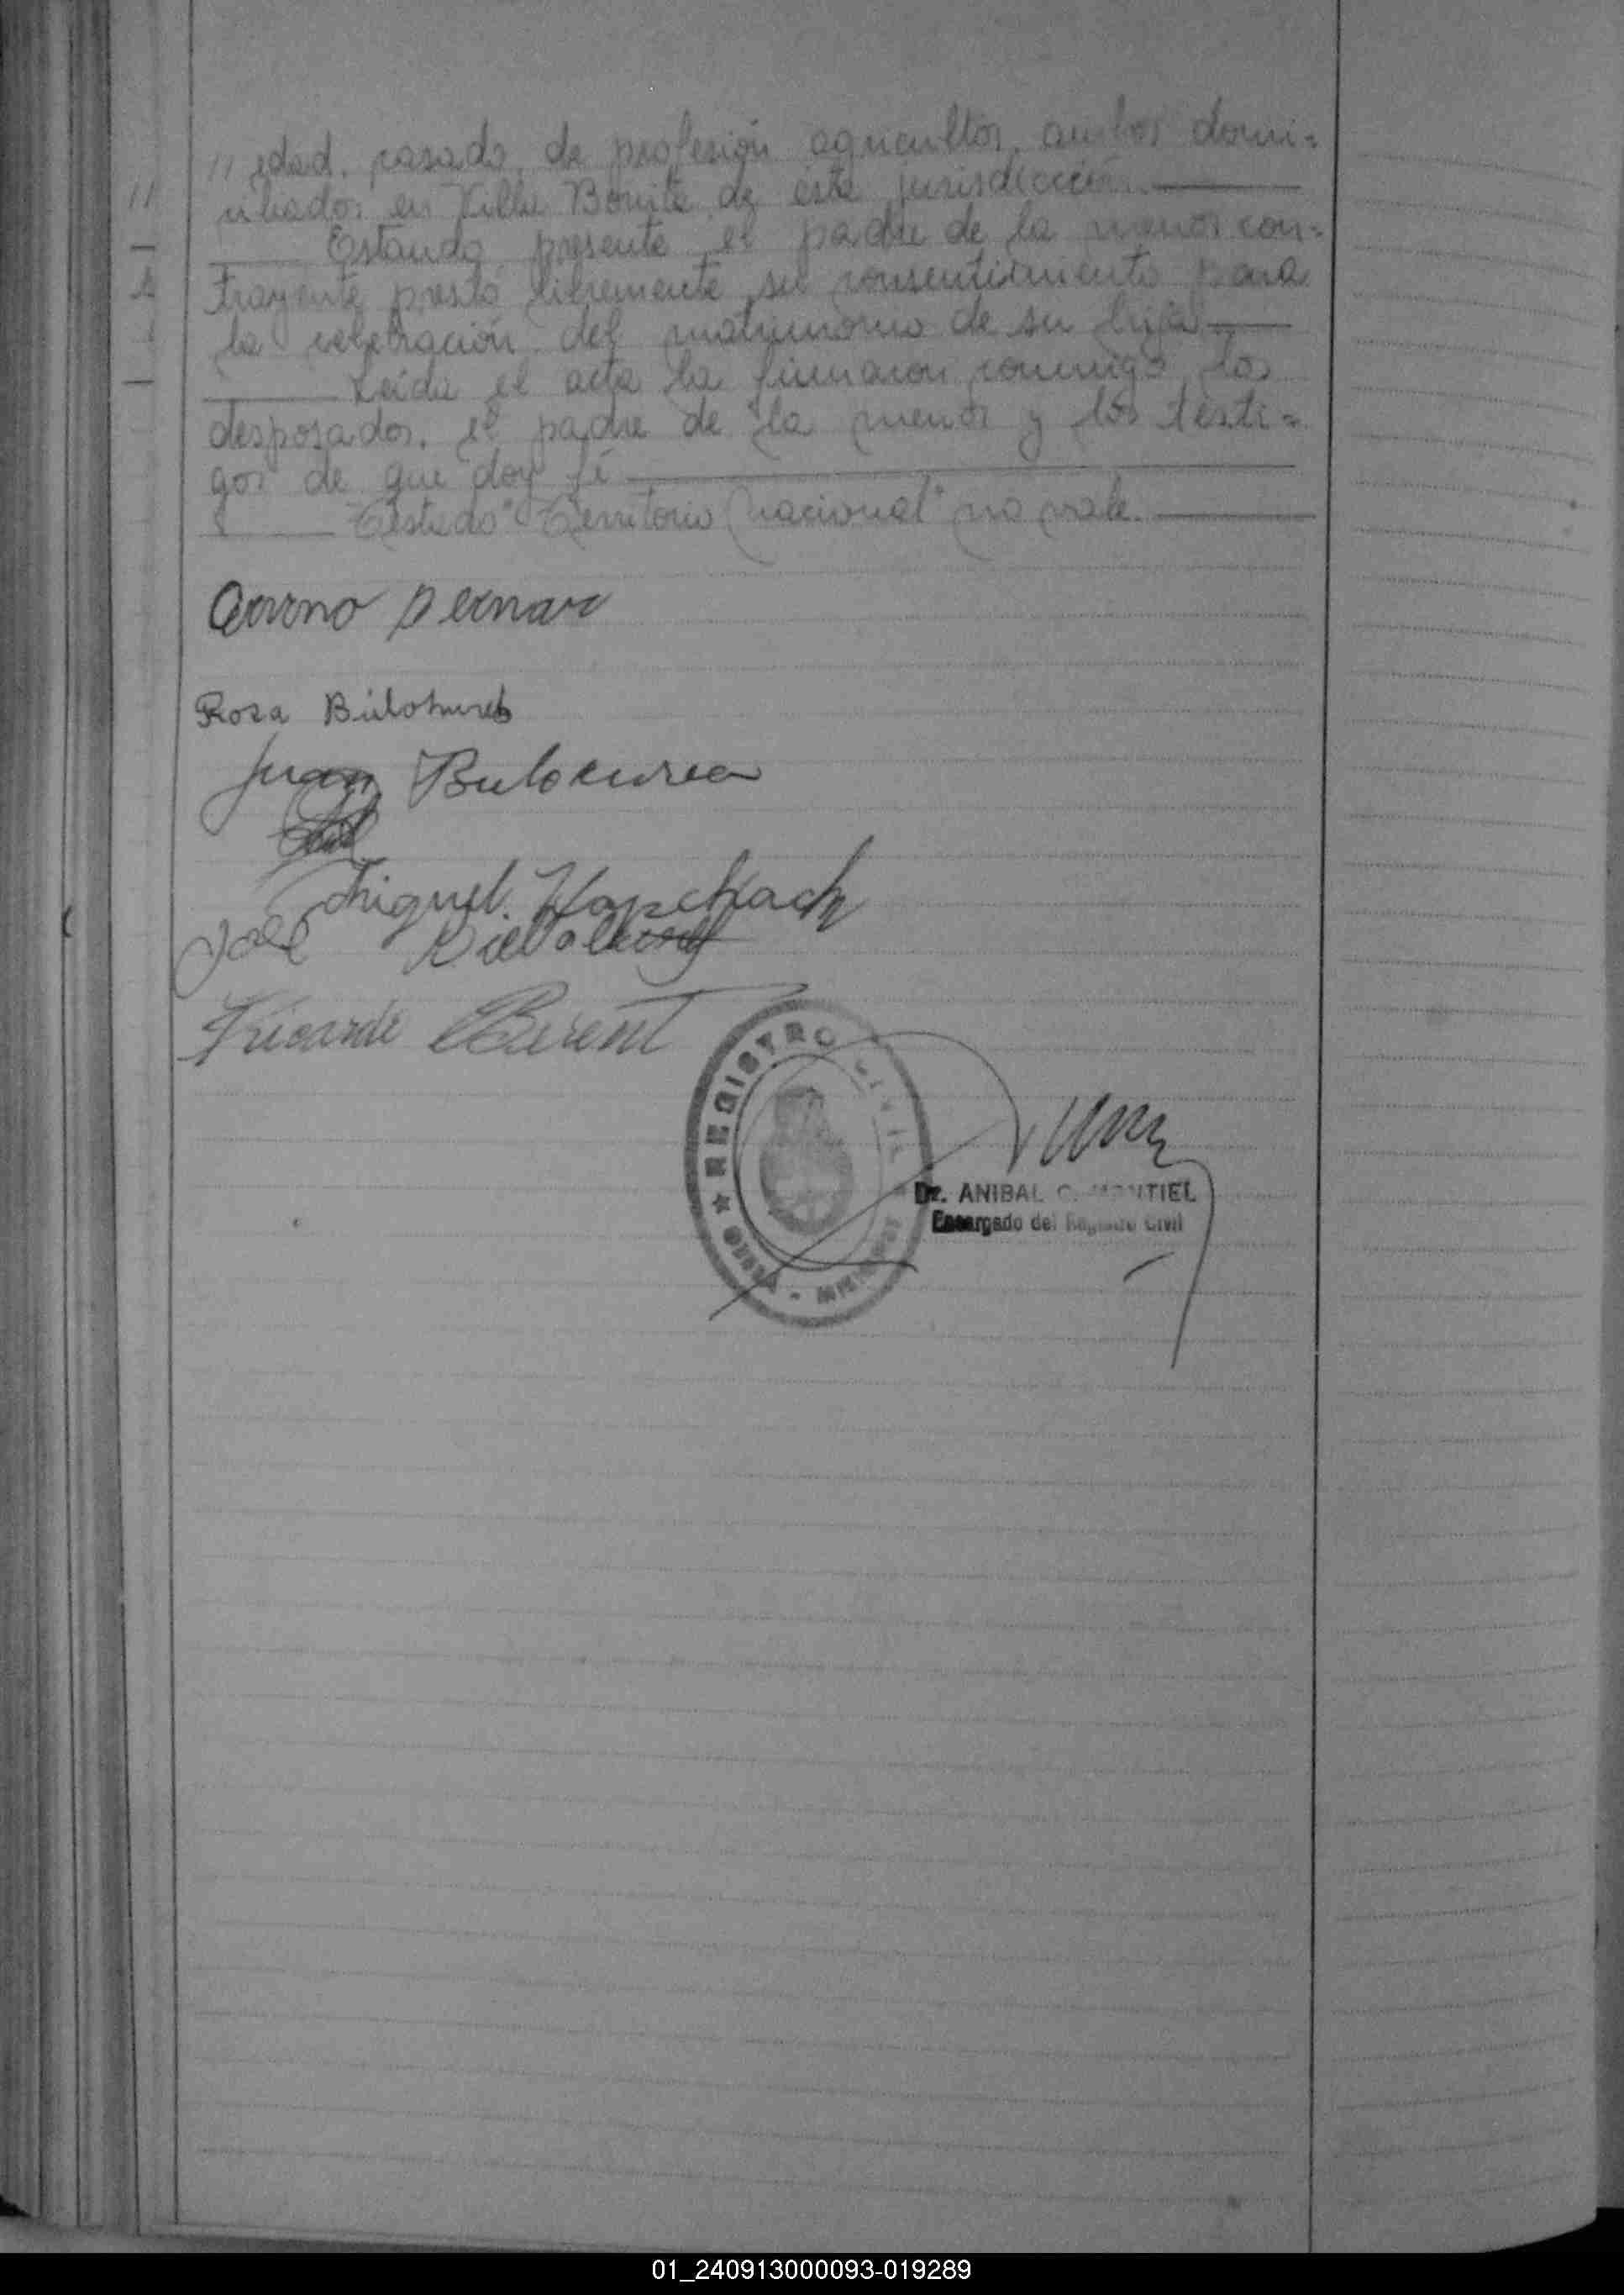 // edad, casado, de profesión agricultor, ambos domi=
ciliados en Villa Bonita de ésta jurisdicción.
Estando presente el padre de la menor con=
trayente prestó libremente su consentimiento para
la celebración del matrimonio de su hija
Leída el acta la firmaron conmigo, los
desposados, el padre de la menor y los testi=
gos de que doy fé
Testado "Territorio Nacional" no vale.
Rosa
Juan
Miguel
José
Ricardo
REGISTRO CIVIL
MISIONES
Dr. ANIBAL C. MONTIEL
Encargado del Registro Civil
01_240913000093-019289